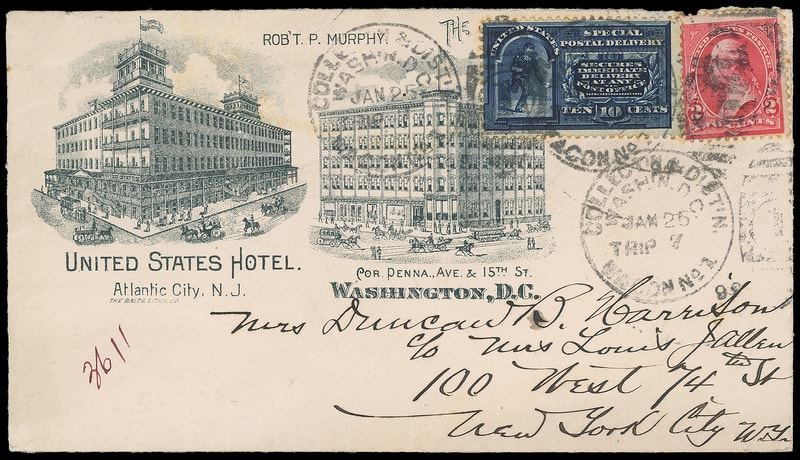 ROB'T. P. MURPHY.
THE
UNITED STATES
SPECIAL
POSTAL DELIVERY
SECURES
IMMEDIATE
DELIVERY
AT ANY
POST OFFICE
TEN 10 CENTS
2 CENTS 2
COLLECTION & DISTIN.
WASHIN. D.C.
JAN 25
WAGON No. 1
COLLECTION & DISTIN.
WASHIN. D.C.
JAN 25
TRIP 7
WAGON No. 1
96
UNITED STATES HOTEL.
Atlantic City, N. J.
THE BALTO. LITHO. CO.
COR. PENNA., AVE. & 15TH ST.
WASHINGTON, D.C.
3611
Mrs Duncan B. Harrison
c/o Mrs Louis J Allen
100 West 74 th St
New York City N.Y.